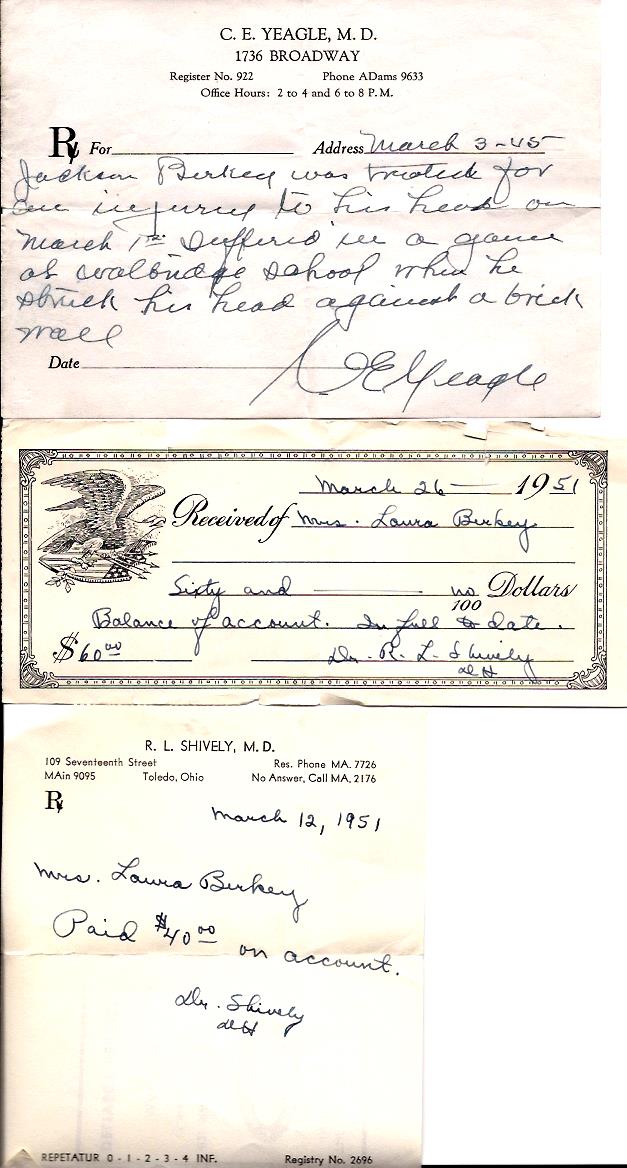 C. E. YEAGLE, M. D.
1736 BROADWAY
Register No. 922 Phone ADams 9633
Office Hours: 2 to 4 and 6 to 8 P. M.
Rx For Address March 3-45
Jackson Birkey was treated for
an injury to his head on
March 1st suffered in a game
at Walbridge school when he
struck his head against a brick
wall
Date C E Yeagle
March 26 1951
Received of Mrs. Laura Birkey
Sixty and no/100 Dollars
Balance of account. In full to date.
$60.00 Dr. R. L. Shively
R. L. SHIVELY, M. D.
109 Seventeenth Street Res. Phone MA. 7726
MAin 9095 Toledo, Ohio No Answer, Call MA. 2176
Rx
March 12, 1951
Mrs. Laura Birkey
Paid $40.00
on account.
Dr. Shively
REPETATUR 0 - 1 - 2 - 3 - 4 INF. Registry No. 2696